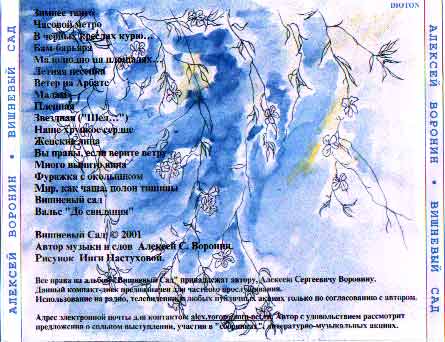 DIOTON
Зимнее танго
Часовой метро
В черных креслах курю...
Бам-барьяра
Малолюдно на площадях...
Летняя песенка
Ветер на Арбате
Малыш
Пленная
Звездная ("Шел...")
Наше хрупкое сердце
Женские лица
Вы правы, если верите ветру
Много выпито вина
Фуражка с околышком
Мир, как чаша, полон тишины
Вишневый сад
Вальс "До свидания"
Вишневый Сад; © 2001
Автор музыки и слов Алексей С. Воронин.
Рисунок Инги Настуховой.
Все права на альбом "Вишневый Сад" принадлежат автору, Алексею Сергеевичу Воронину.
Данный компакт-диск предназначен для частного прослушивания.
Использование на радио, телевидении и любых публичных акциях только по согласованию с автором.
Адрес электронной почты для контактов Автор с удовольствием рассмотрит
предложения о сольном выступлении, участии в "сборниках", литературно-музыкальных акциях.
АЛЕКСЕЙ ВОРОНИН * ВИШНЕВЫЙ САД
АЛЕКСЕЙ ВОРОНИН * ВИШНЕВЫЙ САД